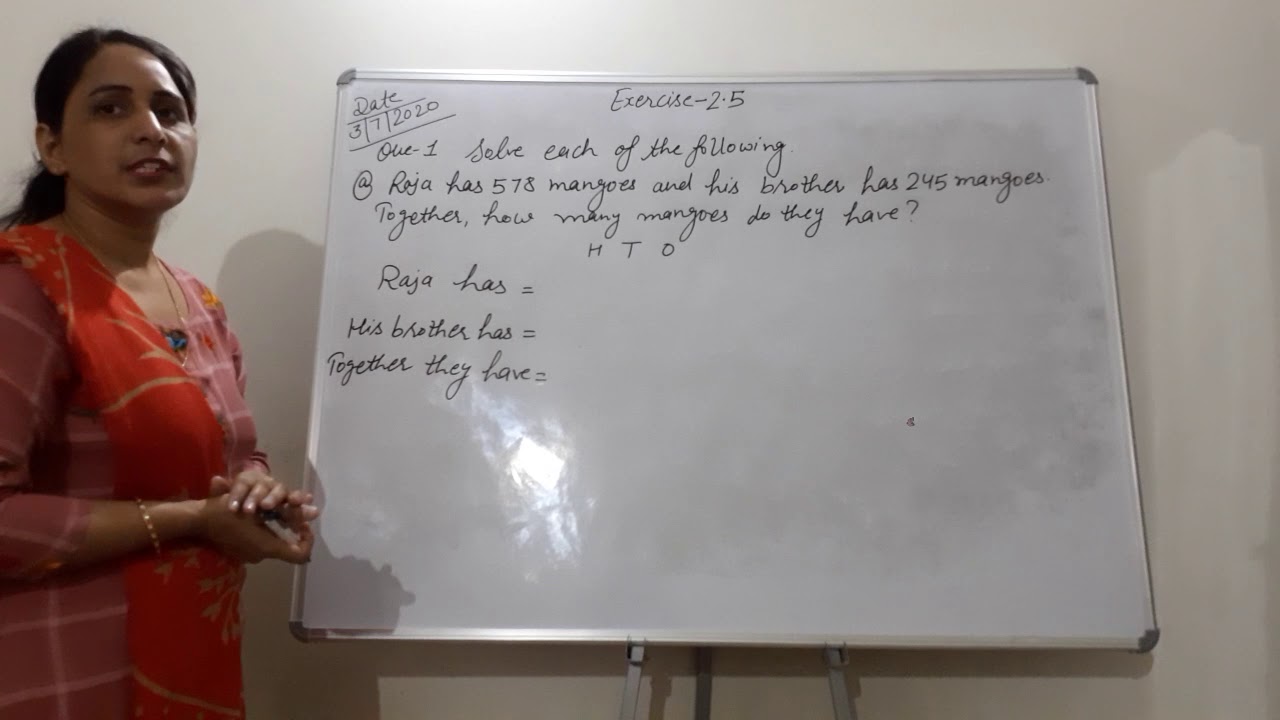 Date
3/7/2020
Exercise-2.5
Que-1 Solve each of the following.
@ Raja has 578 mangoes and his brother has 245 mangoes.
Together, how many mangoes do they have?
H T O
Raja has =
His brother has =
Together they have =